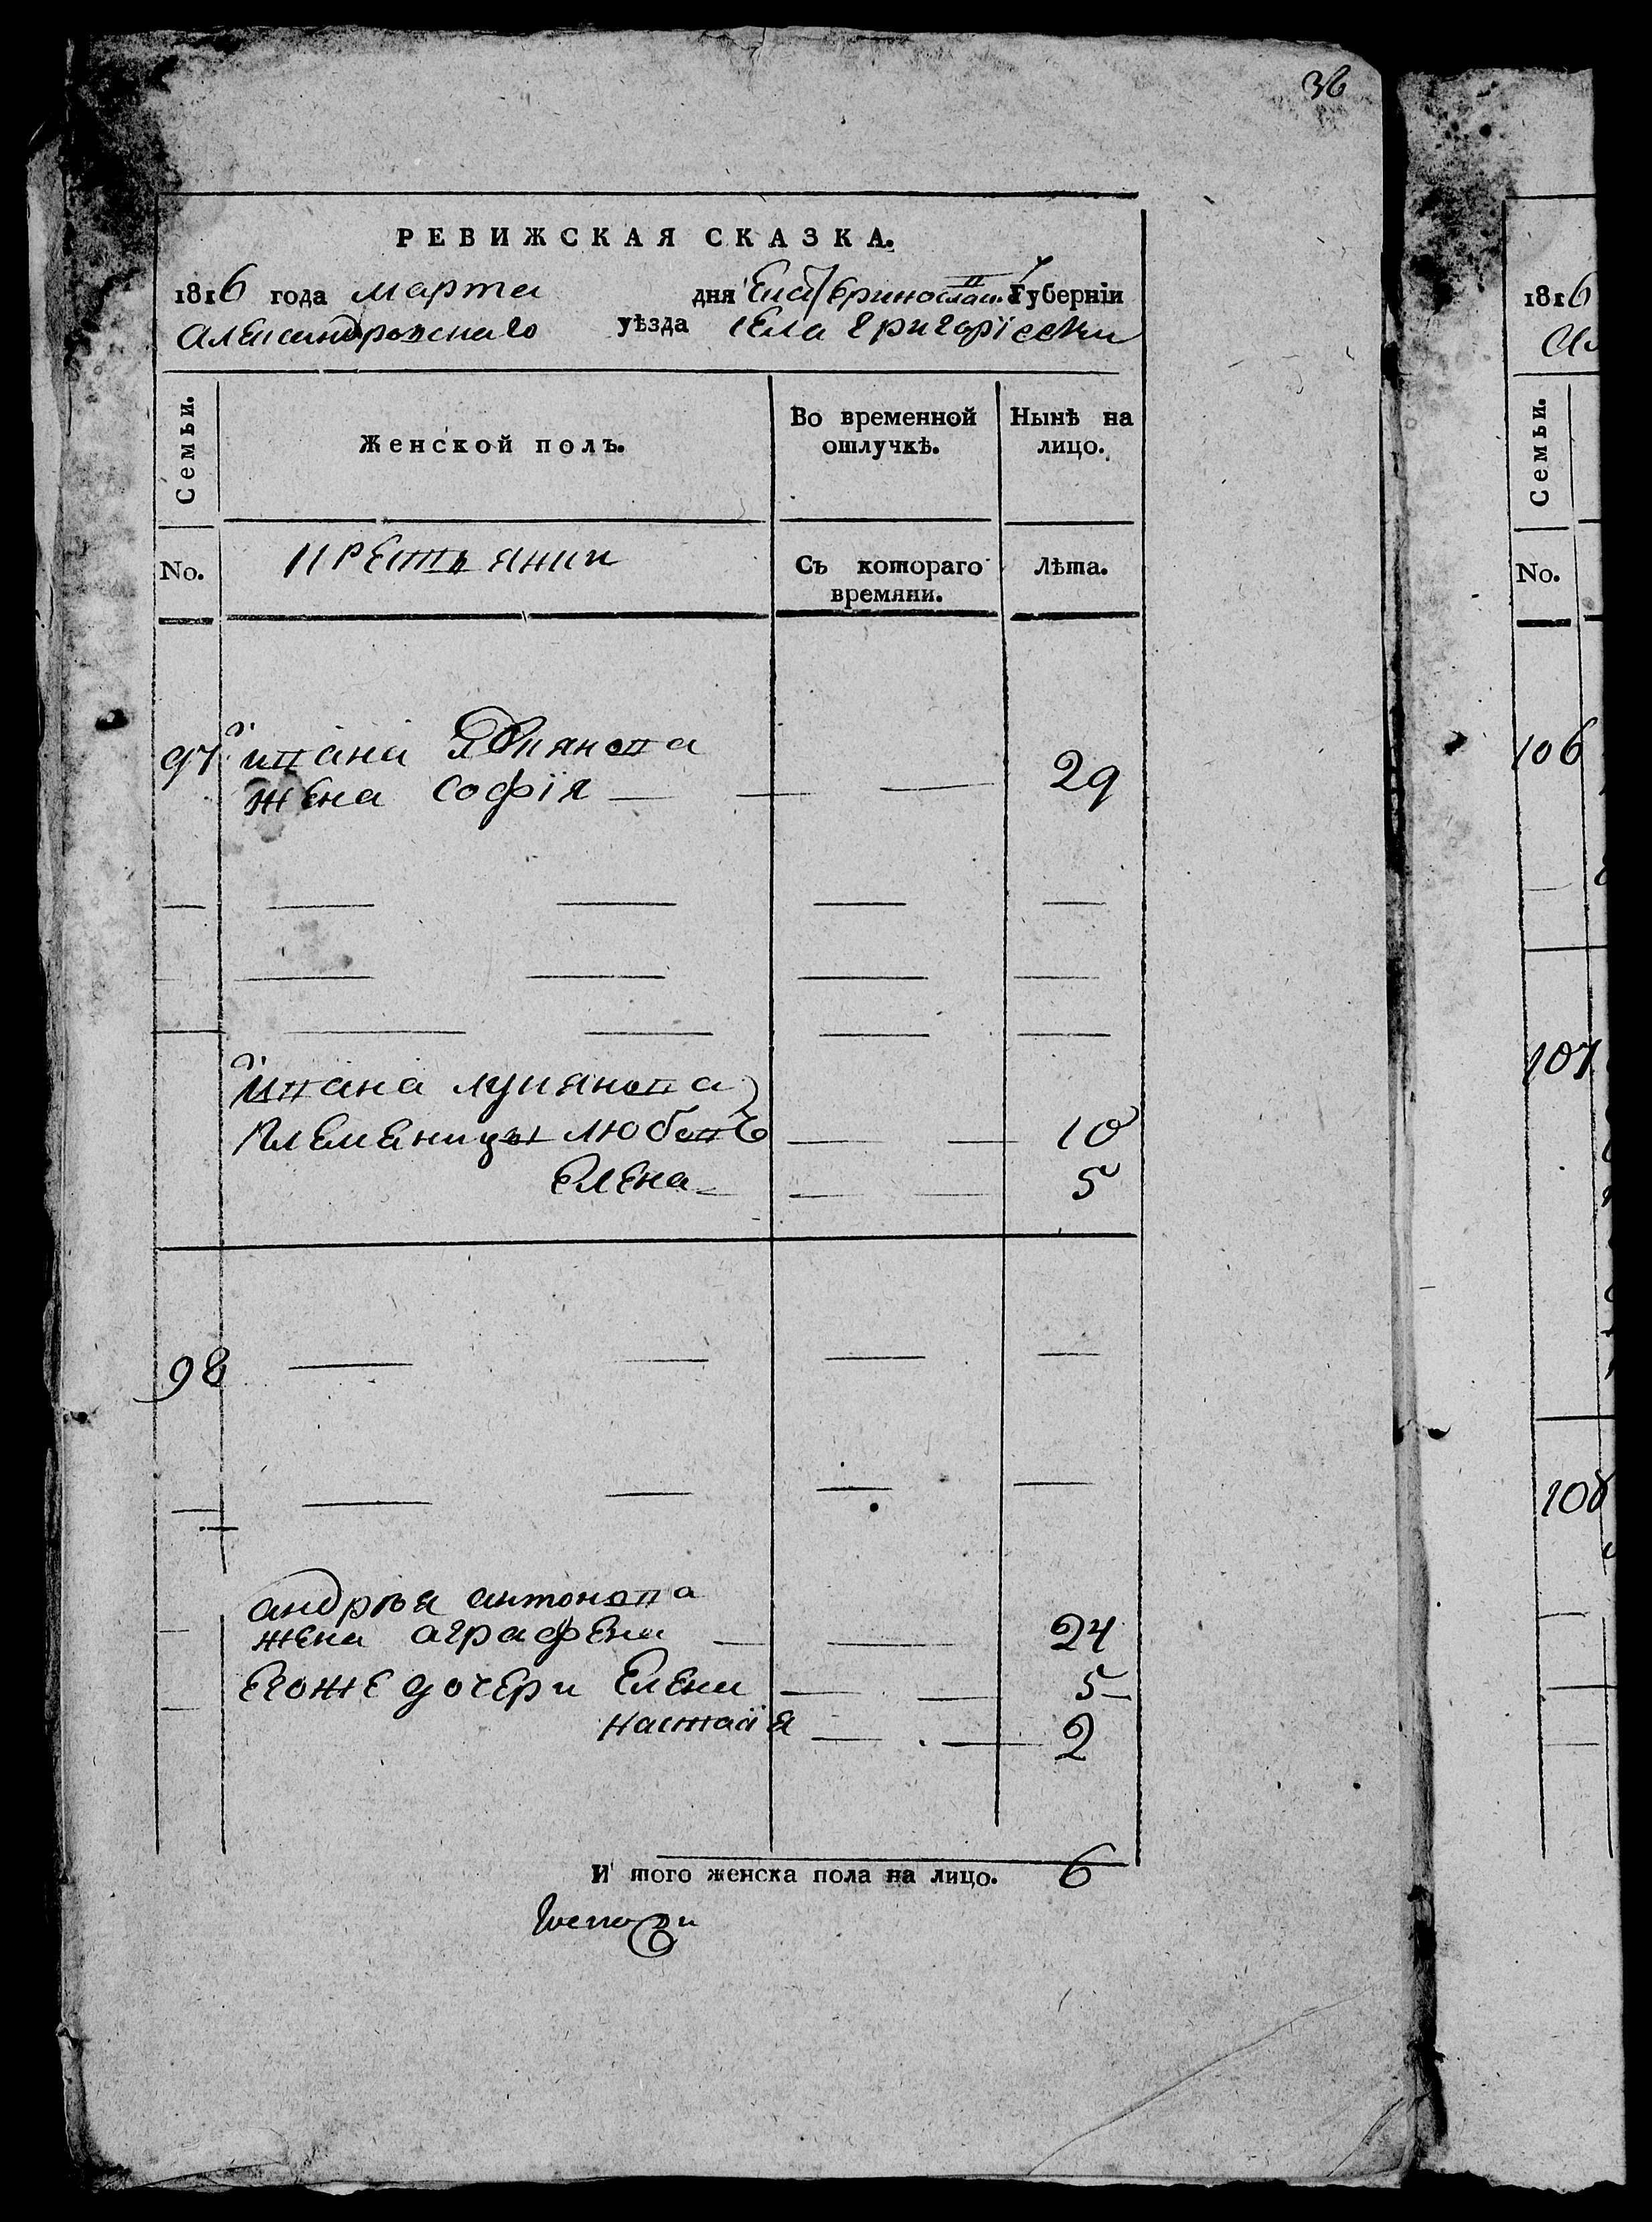 36
РЕВИЖСКАЯ СКАЗКА.
1816 года Марта дня Екатериносла: Губерніи
Александровскаго уѣзда села Григорієвки
Семьи.
Женской полъ.
Во временной отлучкѣ.
Нынѣ на лицо.
No.
крестьянки
Съ котораго времяни.
Лѣта.
97 ивана
жена софія 29
ивана лукянова
племеницы любовъ 10
Елена 5
98
андрѣя антонова
жена аграфена 24
Егоже дочери Елена 5
настася 2
И того женска пола на лицо. 6
1816
Семьи.
No.
106
107
108